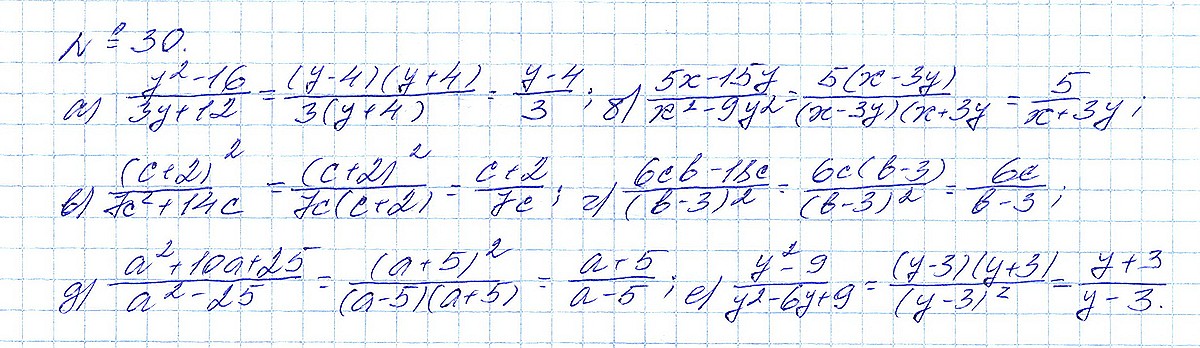 № 30.
а) (y² - 16)/(3y + 12) = ((y - 4)(y + 4))/(3(y + 4)) = (y - 4)/3 ; б) (5x - 15y)/(x² - 9y²) = (5(x - 3y))/((x - 3y)(x + 3y) = 5/(x + 3y) ;
в) (c + 2)²/(7c² + 14c) = (c + 2)²/(7c(c + 2)) = (c + 2)/(7c) ; г) (6cb - 18c)/(b - 3)² = (6c(b - 3))/(b - 3)² = 6c/(b - 3) ;
д) (a² + 10a + 25)/(a² - 25) = (a + 5)²/((a - 5)(a + 5)) = (a + 5)/(a - 5) ; е) (y² - 9)/(y² - 6y + 9) = ((y - 3)(y + 3))/(y - 3)² = (y + 3)/(y - 3).